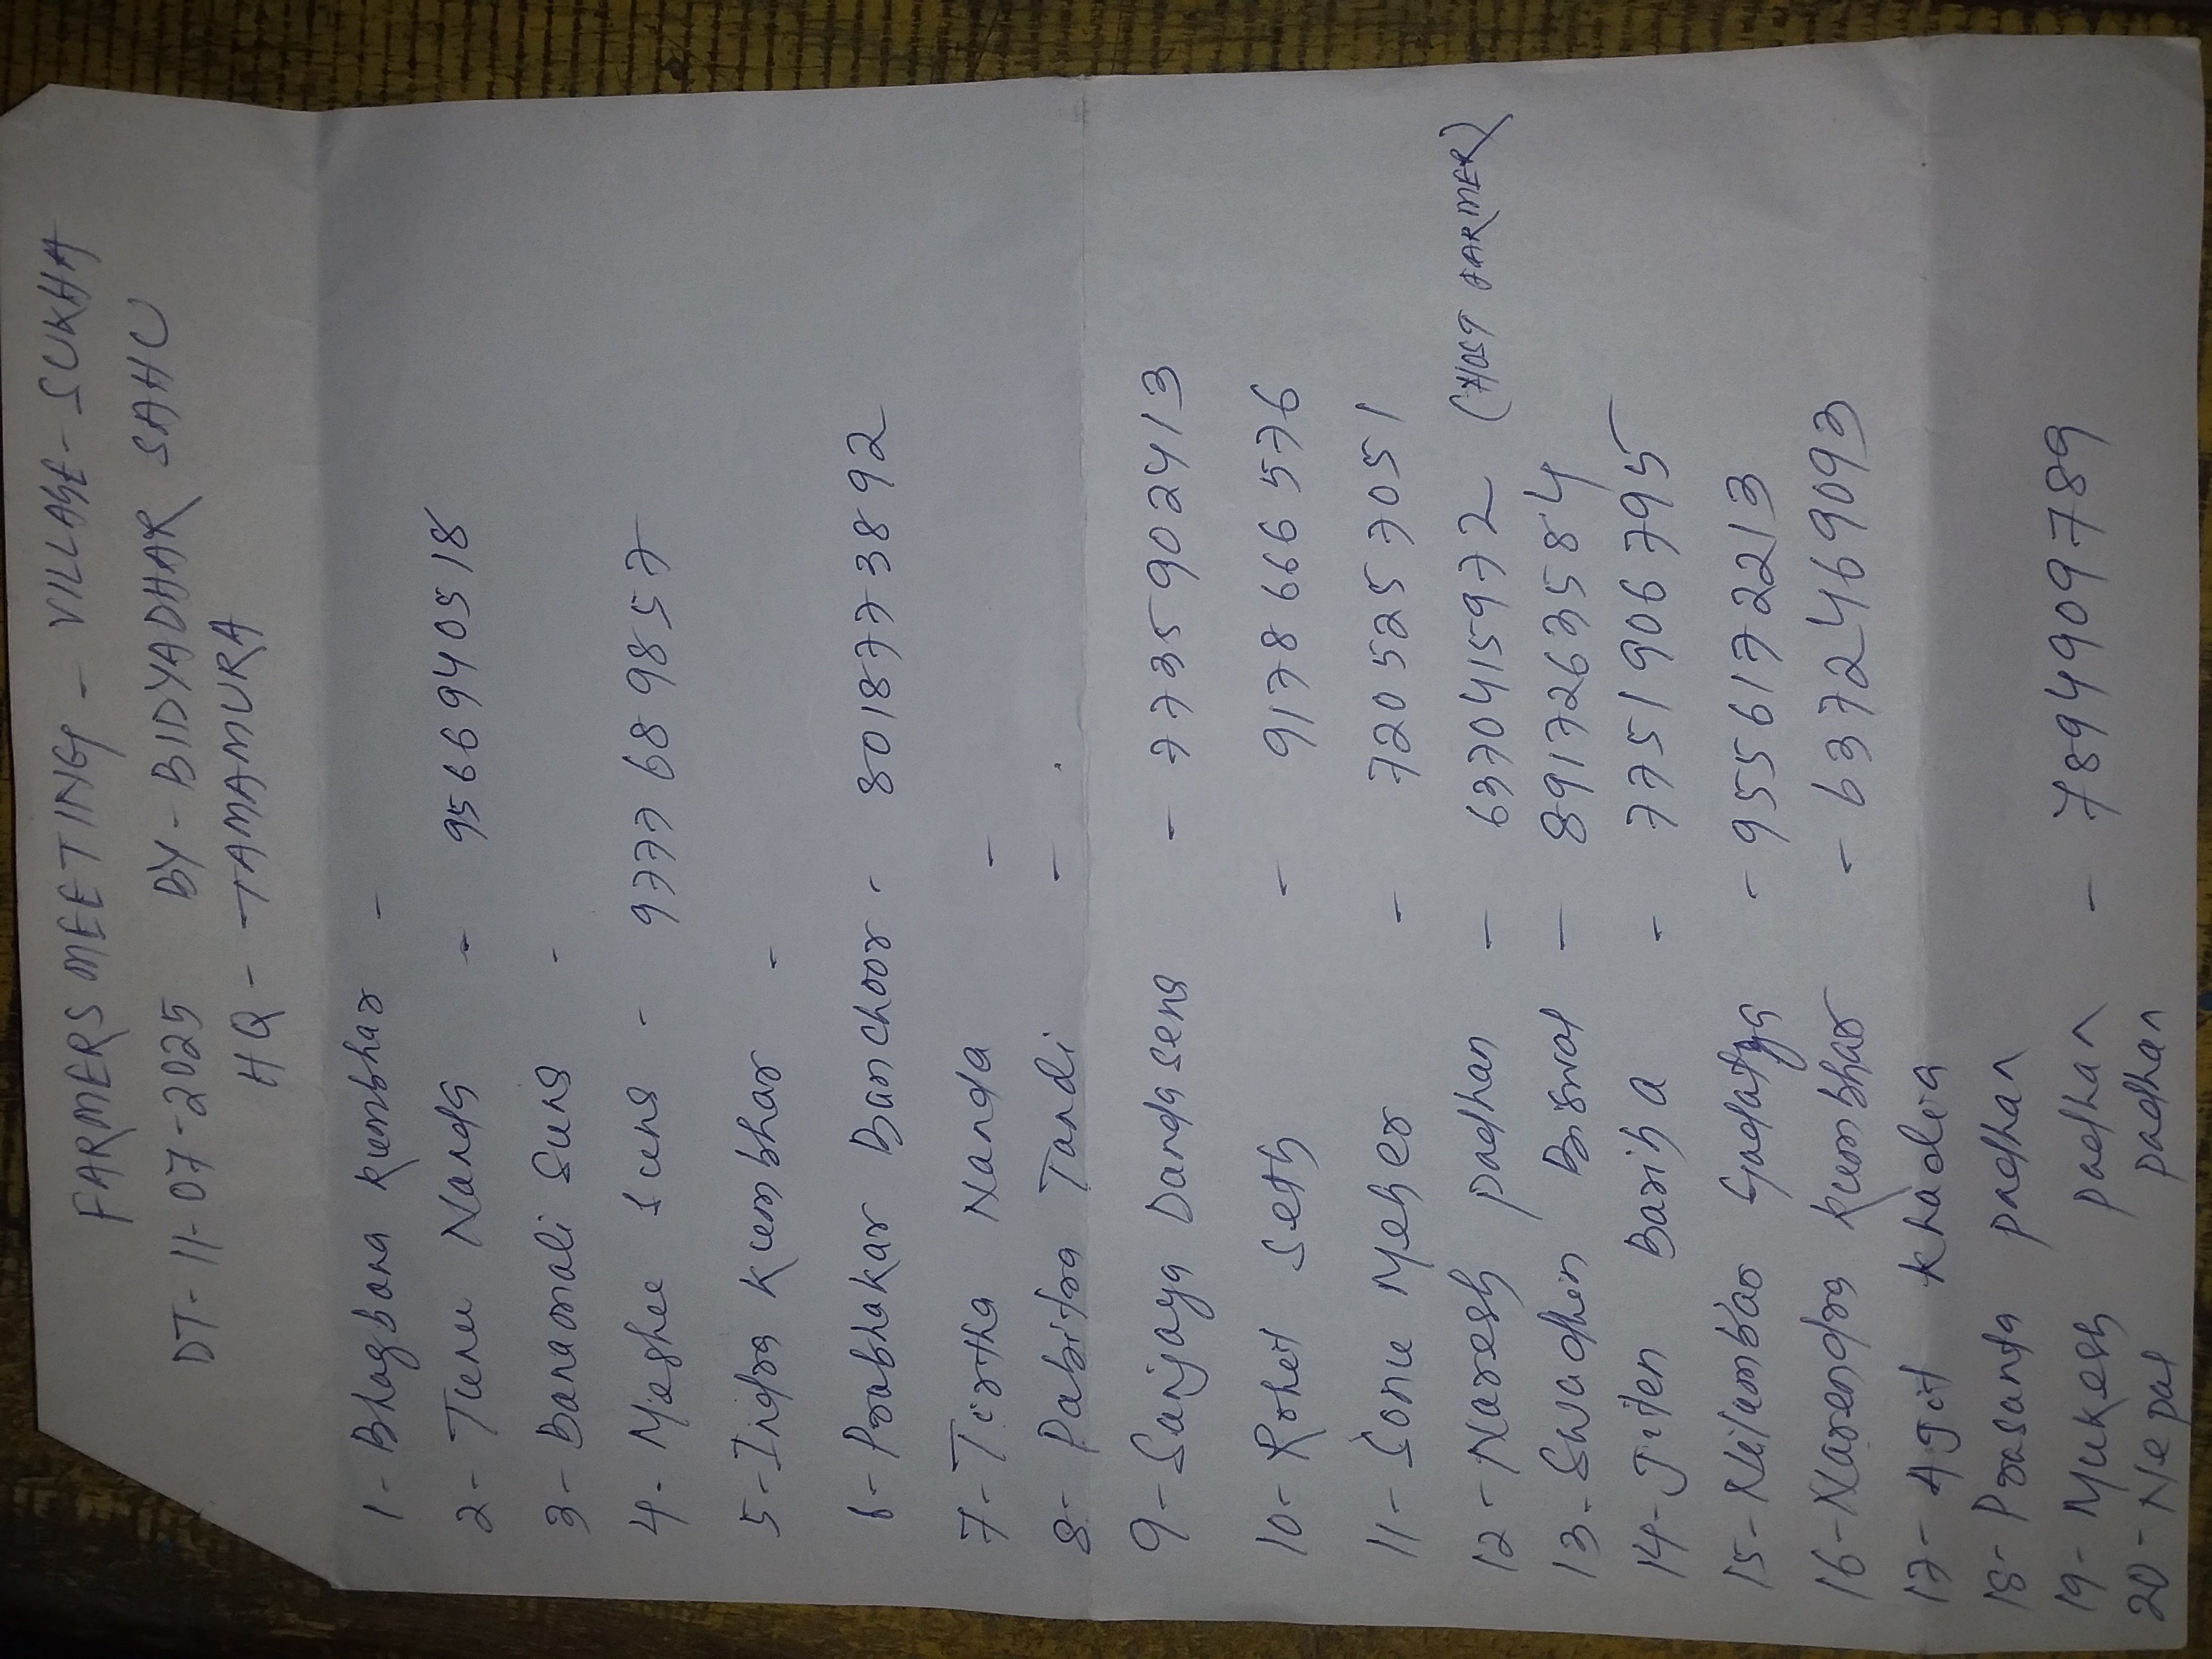 FARMERS MEETING - VILLAGE - SUKHA
DT- 11-07-2025 BY- BIDYADHAR SAHU
HQ - TAMAMURA
1- Bhagbana Kumbhar -
2- Tunu Nanda - 9566940518
3- Banamali Suna -
4- Meghu Suna - 9777689857
5- Indra Kumbhar -
6- Prabhakar Banchoor - 8018773892
7- Tirtha Nanda -
8- Pabitra Tandi -
9- Sanjaya Dandasena - 7735902413
10- Rohit Seth - 9178666576
11- Sonu Meher - 7205257051
12- Naresh padhan - 6370415972 (HOST FARMER)
13- Swadhin Biswal - 8917263584
14- Jiten Bariha - 7751906795
15- Nilambar Gadatya - 9556172213
16- Narendra Kumbhar - 6372469093
17- Ajit khadia
18- Prasanta pradhan
19- Mukesh padhan - 7894909789
20- Nepal padhan